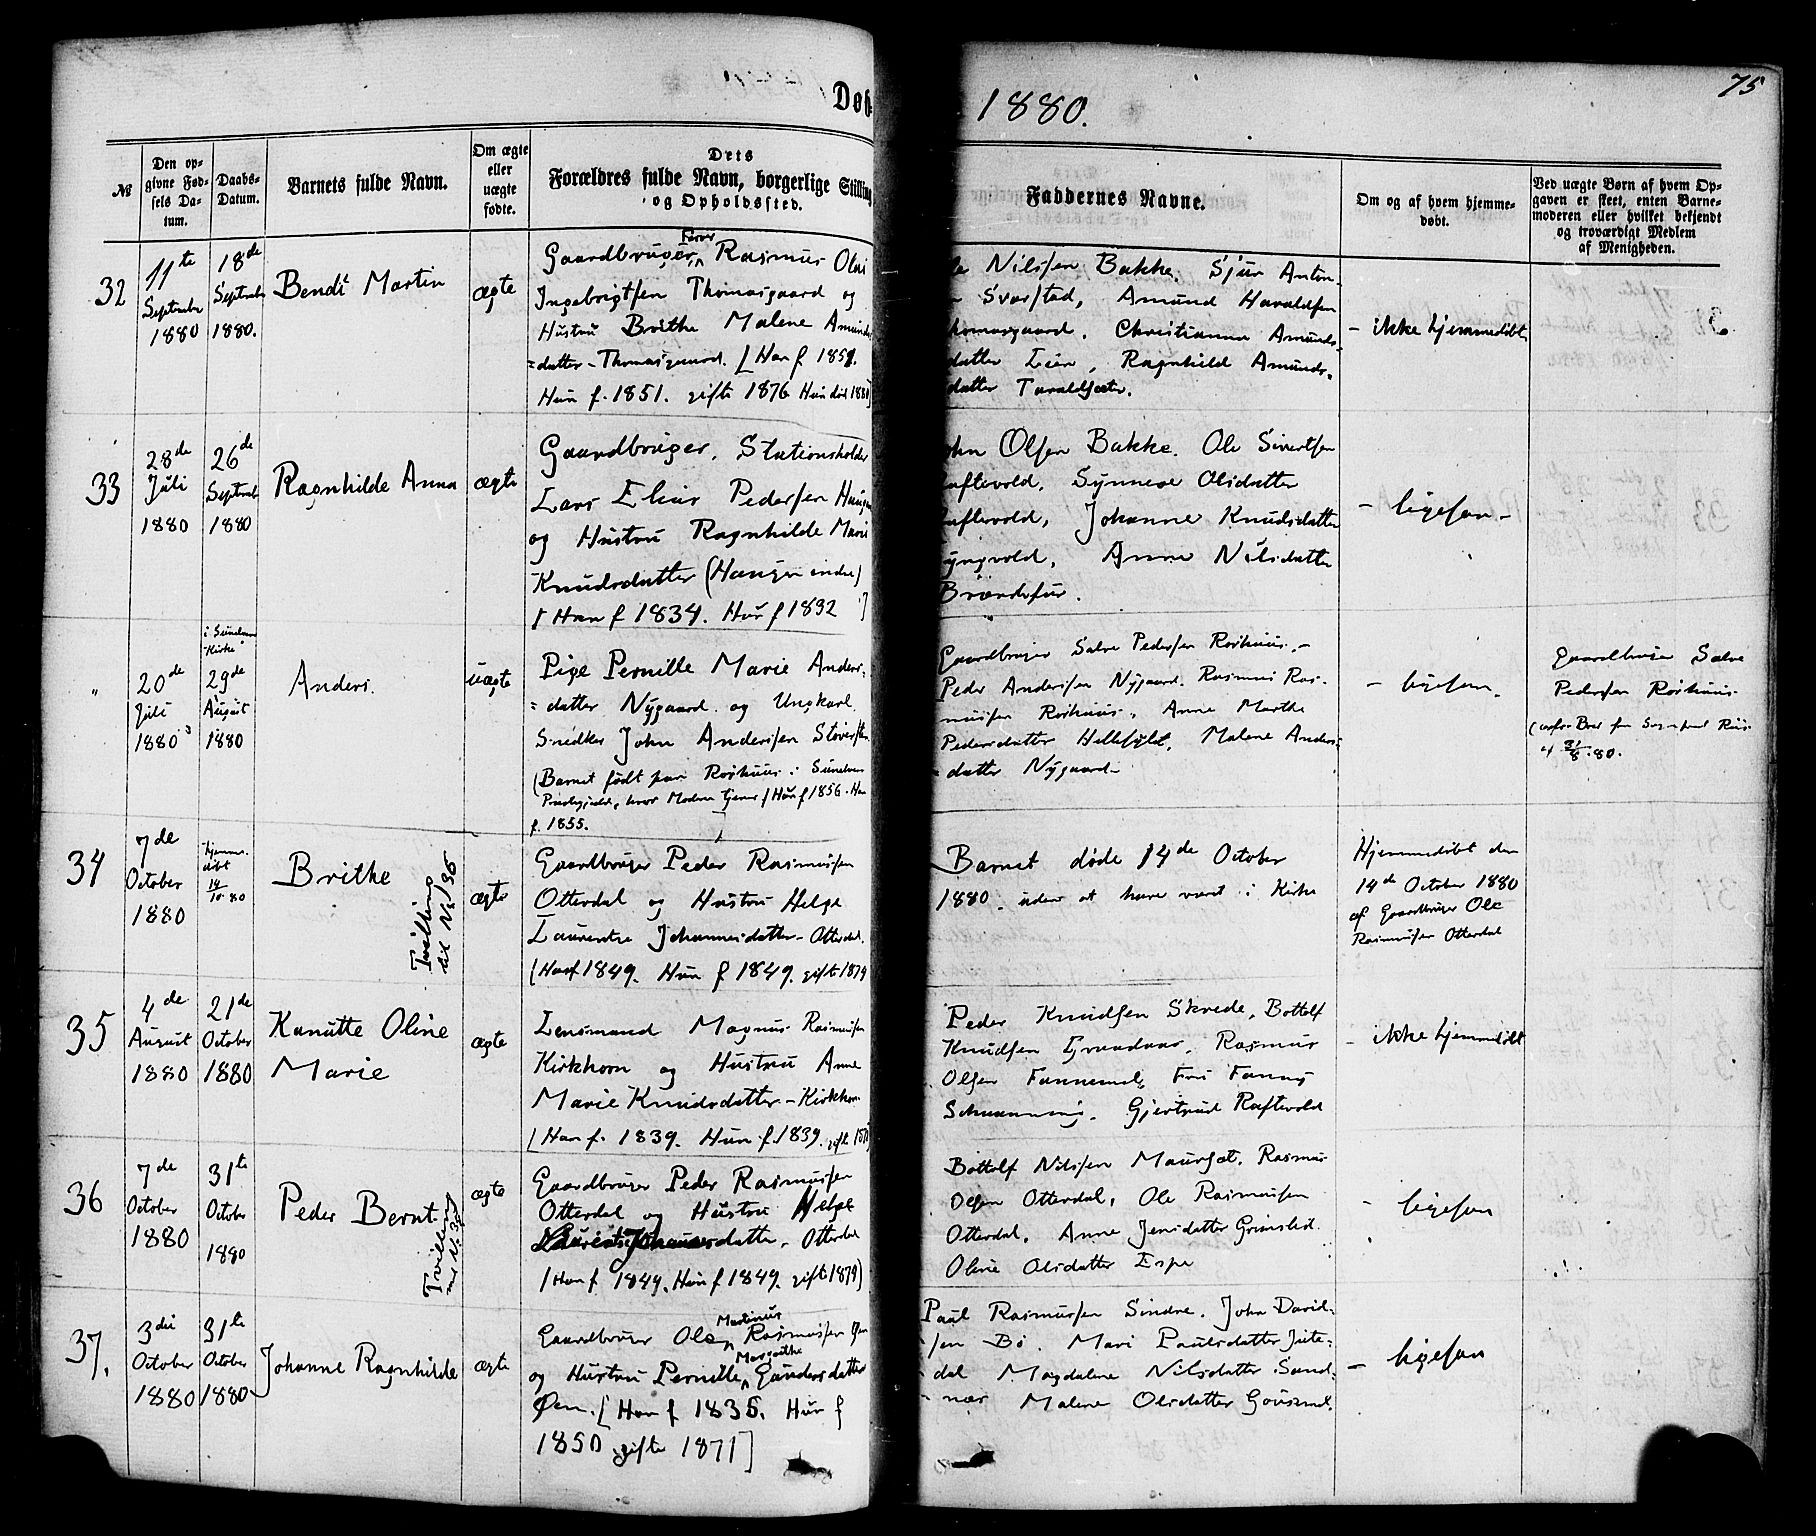 75
Døb
1880.
№
Den op-
givne Fød-
sels Da-
tum.
Daabs-
Datum.
Barnets fulde Navn.
Om ægte
eller
uægte
fødte.
Dets
Forældres fulde Navn, borgerlige Stilling
og Opholdssted.
Faddernes Navne.
Om og af hvem hjemme-
døbt.
Ved uægte Børn af hvem Op-
gaven er skeet, enten Barne-
moderen eller hvilket bekjendt
og troværdigt Medlem
af Menigheden.
32
11te
September
1880
18de
September
1880.
Bendt Martin
ægte
Gaardbruger Rasmus Olai
Ingebrigtsen Thomasgaard og
Hustru Brithe Malene Amunds
=datter - Thomasgaard. [Han f. 1851.
Hun f. 1851. gifte 1876 Hun död 1880]
Nilssen Bakke. Sjur Anton-
Svarstad, Amund Haraldsen
Thomasgaard. Christianna Amunds-
datter Lien, Ragnhild Amunds-
datter Taraldsæter.
- ikke hjemmedöbt
33
28de
Juli
1880
26de
September
1880
Ragnhilde Anna
ægte
Gaardbruger, Stationsholder
Lars Elias Pedersen Haugen
og Hustru Ragnhilde Marie
Knudsdatter (Haugen indre)
[Han f 1834. Hun f 1832]
John Olsen Bakke. Ole Sivertsen
Raftevold, Synneve Olsdatter
Raftevold, Johanne Knudsdatter
Lyngvold, Anne Nilsdatter
- ligesan -
"
20de
Juli
1880
i Sunelvens
Kirke
29de
August
1880
Anders.
uægte
Pige Pernille Marie Anders-
=datter Nygaard og Ungkarl
Snedker John Andersen
(Barnet födt paa Röshuus i Sunelvens
Præstegjeld, hvor Modren tjener [Hun f 1856. Han
f. 1855.
Gaardbruger Salve Pedersen Röshuus. -
Peder Andersen Nygaard. Rasmus Ras-
mussen Röshuus, Anne Marthe
Pedersdatter Hellesylt, Malene Anders-
=datter Nygaard -
- ligesan.
Gaardbruger Salve
Pedersen Röshuus
31/8.80.
34
7de
October
1880
hjemme-
döbt
14/10 80
Brithe
Tvilling
til No 36
ægte
Gaardbruger Peder Rasmussen
Otterdal og Hustru Helge
Laurentse Johannesdatter - Otterdal.
(Han f 1849. Hun f 1849. gifte 1879
Barnet döde 14de October
1880. uden at have været i Kirke
Hjemmedöbt den
14de October 1880
af Gaardbruger Ole
Rasmussen Otterdal
35
4de
August
1880
21de
October
1880
Kanutte Oline
Marie
ægte
Lensmand Magnus Rasmussen
Kirkhorn og Hustru Anne
Marie Knudsdatter - Kirkhorn
[Han f. 1839. Hun f. 1839. gifte
Peder Knudsen Skrede, Bottolf
Knudsen Rasmus
Olsen Fannemel, Fru Fanny
Gjertrud Raftevold
- ikke hjemmedöbt
36
7de
October
1880
31te
October
1880
Peder Bernt
Tvilling
med No 34
ægte
Gaardbruger Peder Rasmussen
Otterdal og Hustru Helge
Laurentse Johannesdatter, Otterdal
[Han f 1849. Hun f 1849. gifte 1879)
Bottolf Nilssen Maurset. Rasmus
Olsen Otterdal, Ole Rasmussen
Otterdal, Anne Jensdatter Grimstad
Oline Olsdatter Espe
- ligesan
37.
3die
October
1880
31te
October
1880
Johanne Ragnhilde
ægte
Martinus
Gaardbruger Ole Rasmussen Öen
Margrethe
og Hustru Pernille Gundersdatter
Öen. [Han f 1836. Hun f
1850 gifte 1871]
Paul Rasmussen Sindre. John David-
sen Bö. Mari Paulsdatter
dal Magdalene Nilsdatter Sand-
nær Malene Olsdatter Gausemel.
- ligesan